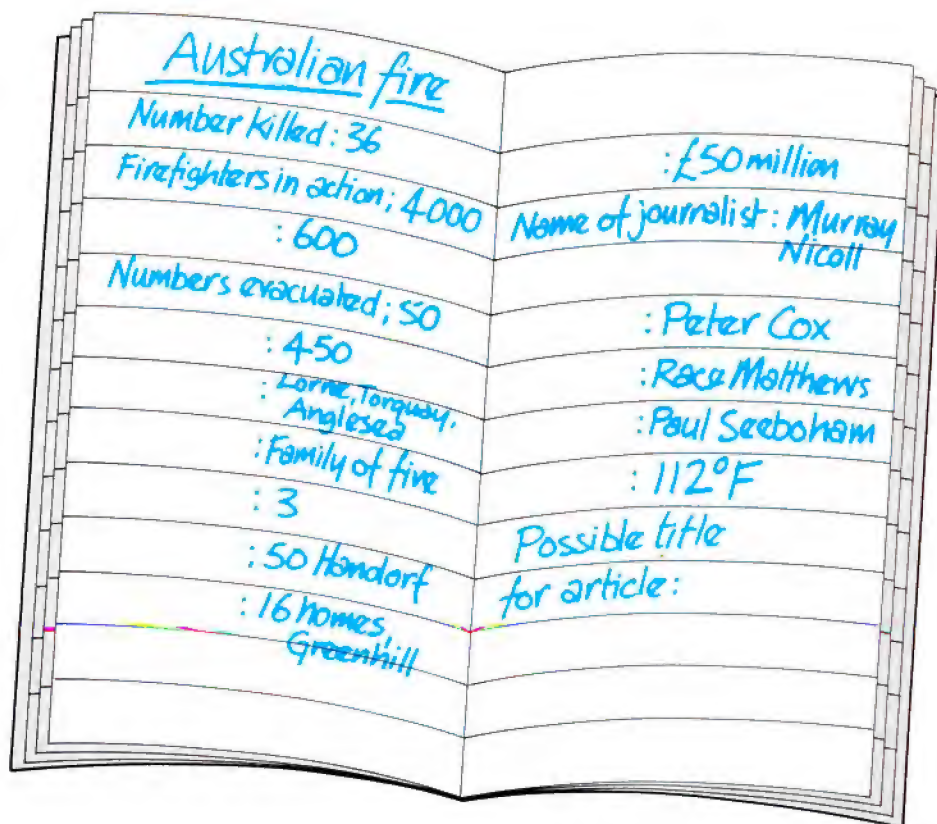 Australian fire
Number killed: 36
Firefighters in action; 4000
: 600
Numbers evacuated; 50
: 450
: Lorne, Torquay,
Anglesea
: Family of five
: 3
: 50 Handorf
: 16 homes,
Greenhill
: £50 million
Name of journalist: Murray
Nicoll
: Peter Cox
: Race Matthews
: Paul Seeboham
: 112°F
Possible title
for article: